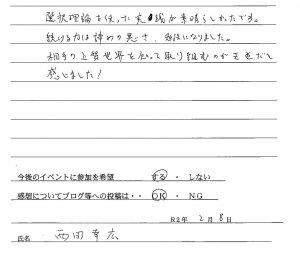 選択理論を使った実績が素晴らしかったです。
続ける力は諦めの悪さ、勉強になりました。
相手の上質世界を知って取り組むのが大事だと
感じました！
今後のイベントに参加を希望 する ・ しない
感想についてブログ等への投稿は・・ OK ・ NG
R2年 2月 8日
氏名 西田 幸広